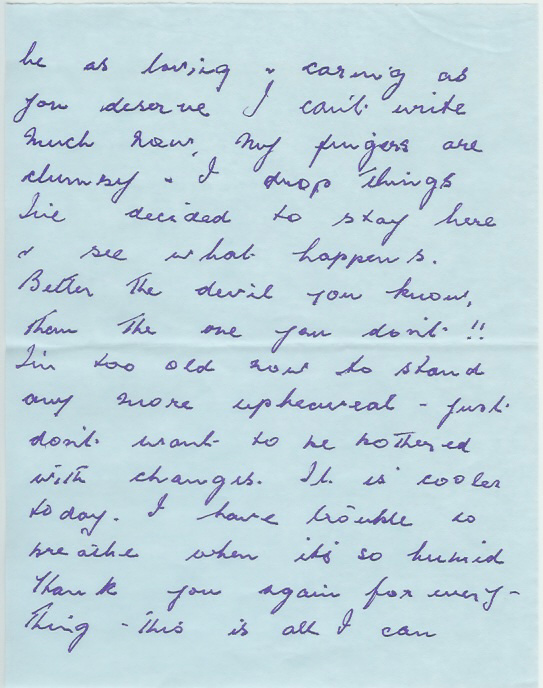 be as loving & caring as
you deserve I can't write
much now, my fingers are
clumsy & I drop things
I've decided to stay here
& see what happens.
Better the devil you know,
than the one you don't!!
I'm too old now to stand
any more upheaveal - just
don't want to be bothered
with changes. It is cooler
today. I have trouble to
breathe when it's so humid
Thank you again for every-
thing - this is all I can